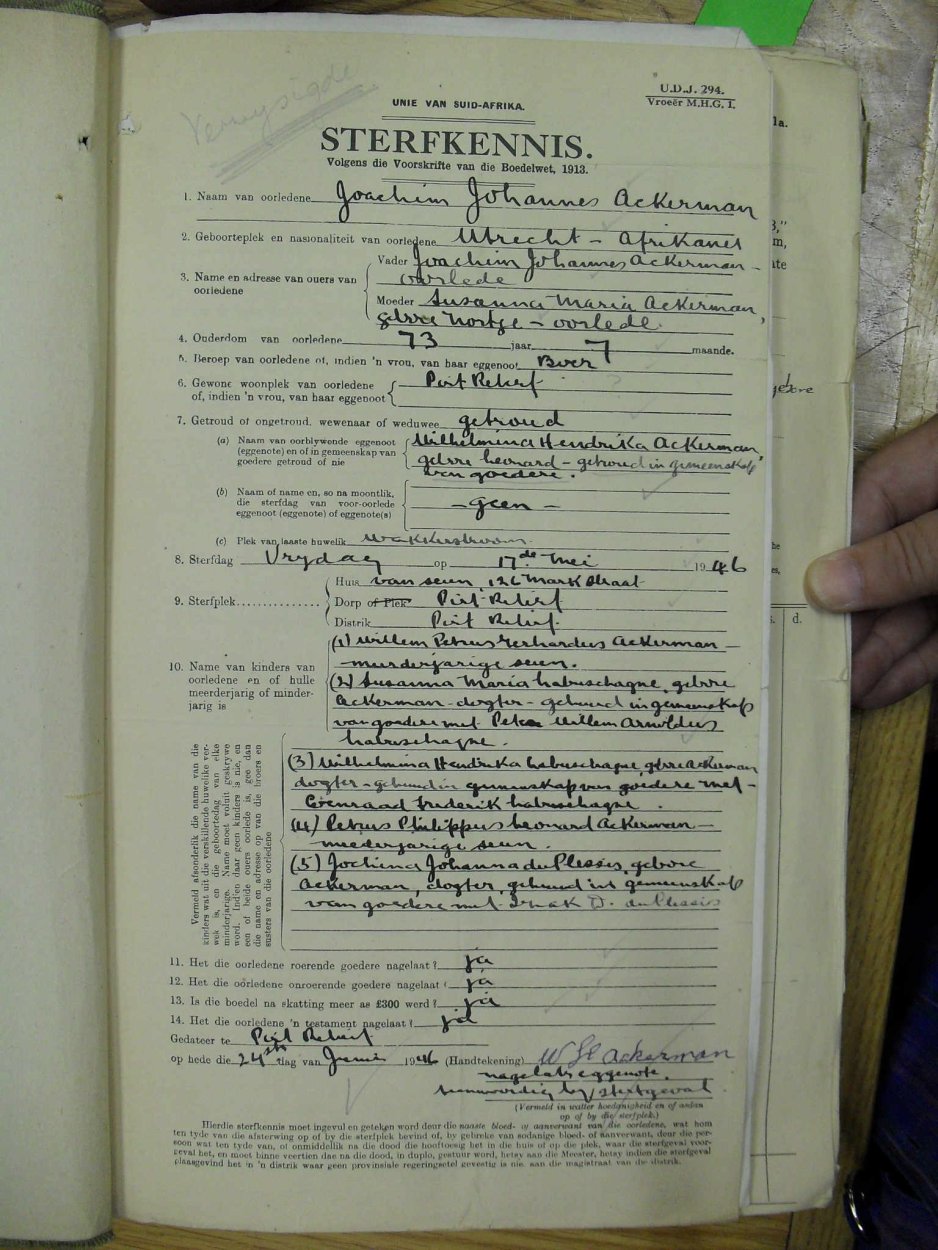 Verwysigde
U.D.J. 294.
Vroeër M.H.G. 1.
UNIE VAN SUID-AFRIKA.
STERFKENNIS.
Volgens die Voorskrifte van die Boedelwet, 1913.
1. Naam van oorledene Joachim Johannes Ackerman
2. Geboorteplek en nasionaliteit van oorledene Utrecht - Afrikaner
3. Name en adresse van ouers van oorledene
Vader Joachim Johannes Ackerman -
oorlede
Moeder Susanna Maria Ackerman,
gebore Nortje - oorlede
4. Ouderdom van oorledene 73 jaar 7 maande.
5. Beroep van oorledene of, indien 'n vrou, van haar eggenoot Boer
6. Gewone woonplek van oorledene Piet Retief
of, indien 'n vrou, van haar eggenoot
7. Getroud of ongetroud, wewenaar of weduwee getroud
(a) Naam van oorblywende eggenoot Wilhelmina Hendrika Ackerman,
(eggenote) en of in gemeenskap van gebore Leonard - getroud in gemeenskap
goedere getroud of nie van goedere.
(b) Naam of name en, so na moontlik,
die sterfdag van voor-oorlede - geen -
eggenoot (eggenote) of eggenote(s)
(c) Plek van laaste huwelik Wakkerstroom
8. Sterfdag Vrydag op 17de Mei 1946
9. Sterfplek
Huis van seun, 126 Mark Straat
Dorp of Plek Piet Retief
Distrik Piet Retief.
10. Name van kinders van
oorledene en of hulle
meerderjarig of minder-
jarig is
(1) Willem Petrus Gerhardus Ackerman -
meerderjarige seun.
(2) Susanna Maria Labuschagne, gebore
Ackerman - dogter - gehuud in gemeenskap
van goedere met Petrus Willem Arnoldus
Labuschagne.
Vermeld afsonderlik die name van die
kinders wat uit die verskillende huwelike ver-
wek is, en die geboortedag van elke
minderjarige. Name moet voluit geskrywe
word. Indien daar geen kinders is nie, en
een of beide ouers oorlede is, gee dan
die name en adresse op van die broers en
susters van die oorledene
(3) Wilhelmina Hendrika Labuschagne, gebore Ackerman
dogter - gehuud in gemeenskap van goedere met -
Coenraad Frederik Labuschagne.
(4) Petrus Philippus Leonard Ackerman -
meerderjarige seun.
(5) Jochima Johanna du Plessis, gebore
Ackerman, dogter, gehuud in gemeenskap
van goedere met Izak D. du Plessis
11. Het die oorledene roerende goedere nagelaat? ja
12. Het die oorledene onroerende goedere nagelaat? ja
13. Is die boedel na skatting meer as £300 werd? ja
14. Het die oorledene 'n testament nagelaat? ja
Gedateer te Piet Retief
op hede die 24ste dag van Junie 1946 (Handtekening) W H Ackerman
nagelate eggenote.
teenwoordig by sterfgeval
(Vermeld in watter hoedanigheid en of aldan
op of by die sterfplek.)
Hierdie sterfkennis moet ingevul en geteken word deur die naaste bloed- of aanverwant van die oorledene, wat hom
ten tyde van die afsterwing op of by die sterfplek bevind of, by gebreke van sodanige bloed- of aanverwant, deur die per-
soon wat ten tyde van, of onmiddellik na die dood die hooftoesig het in die huis of op die plek, waar die sterfgeval voor-
geval het, en moet binne veertien dae na die dood, in duplo, gestuur word, hetsy aan die Meester, hetsy indien die sterfgeval
plaasgevind het in 'n distrik waar geen provinsiale regeringsetel gevestig is nie, aan die magistraat van die distrik.
d.